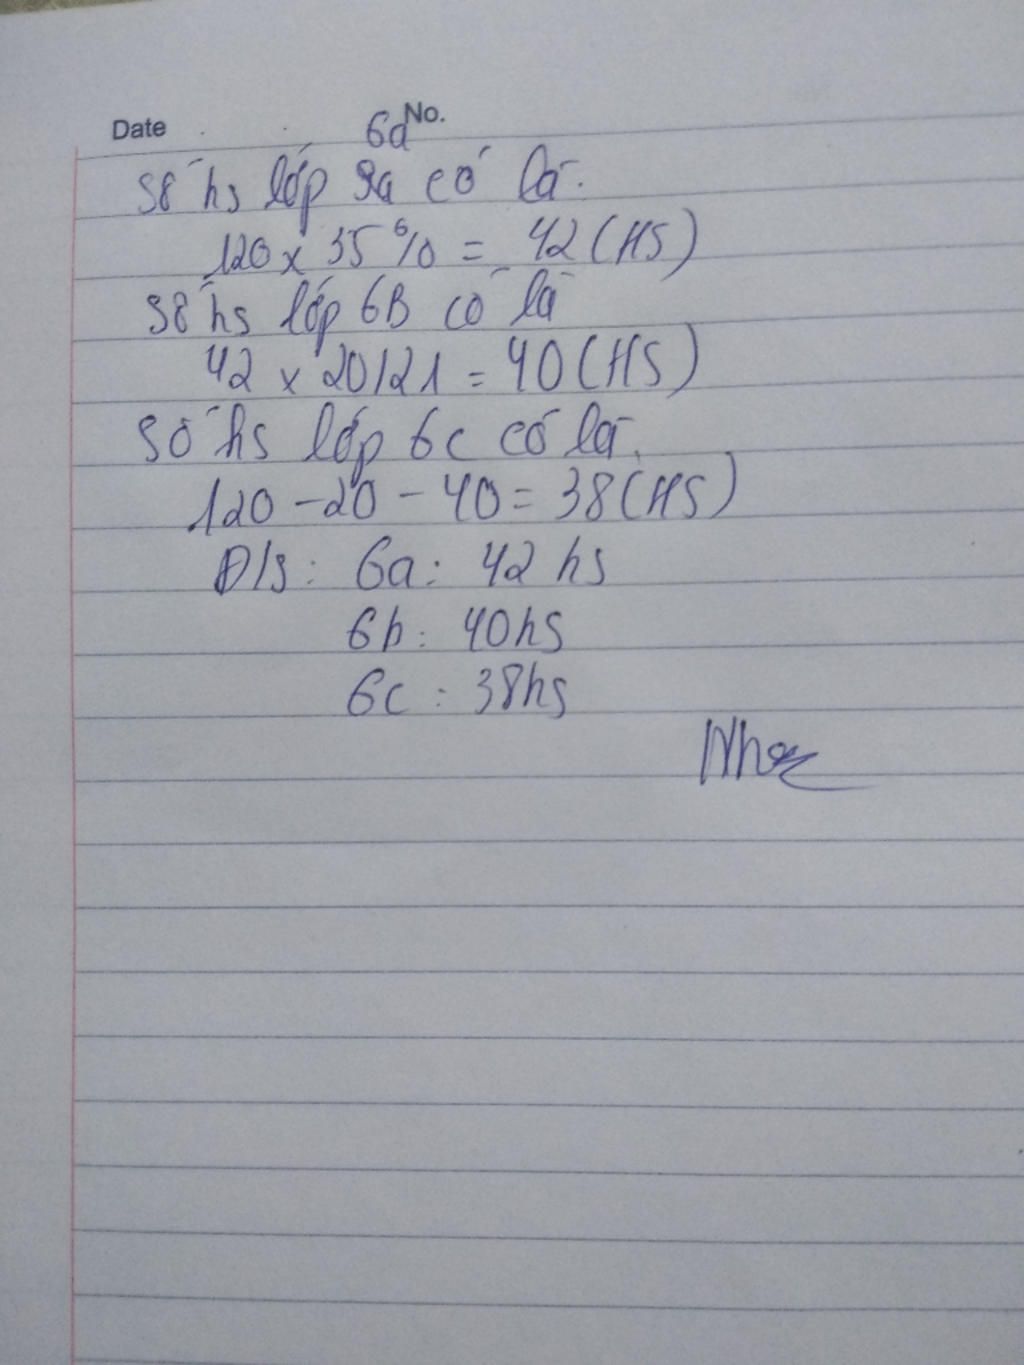 Date No.
6a
Số hs lớp 9a có là.
120 x 35% = 42 (HS)
Số hs lớp 6B có là
42 x 20/21 = 40 (HS)
Số hs lớp 6c có là.
120 - 20 - 40 = 38 (HS)
Đ/s: 6a: 42 hs
6b: 40hs
6c: 38hs